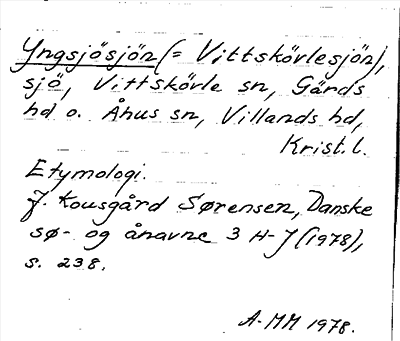 Yngsjösjön (= Vittskövlesjön),
sjö, Vittskövle sn, Gärds
hd o. Åhus sn, Villands hd,
Krist. l.
Etymologi.
J. Kousgård Sørensen, Danske
sø- og ånavne 3 H-J (1978),
s. 238.
A-MM 1978.